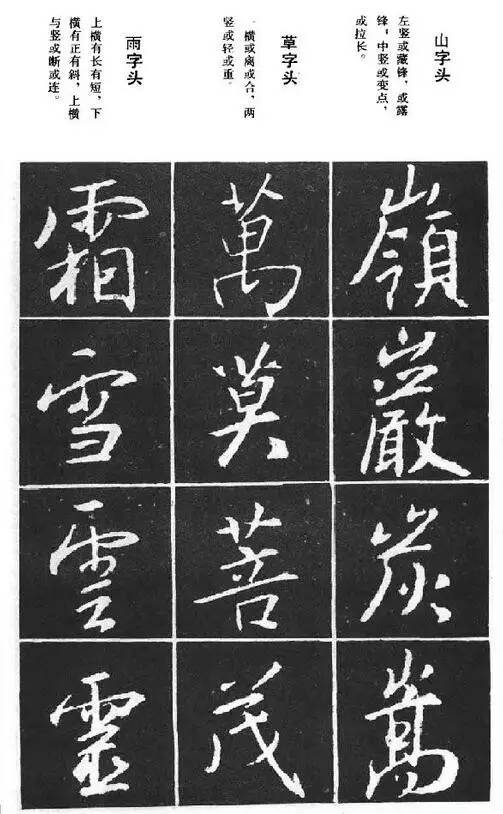 山字头
左竖或藏锋，或露
锋，中竖或变点，
或拉长。
嶺巖炭嵩
草字头
一横或离或合，两
竖或轻或重。
萬莫菩茂
雨字头
上横有长有短，下
横有正有斜，上横
与竖或断或连。
霜雪雲靈